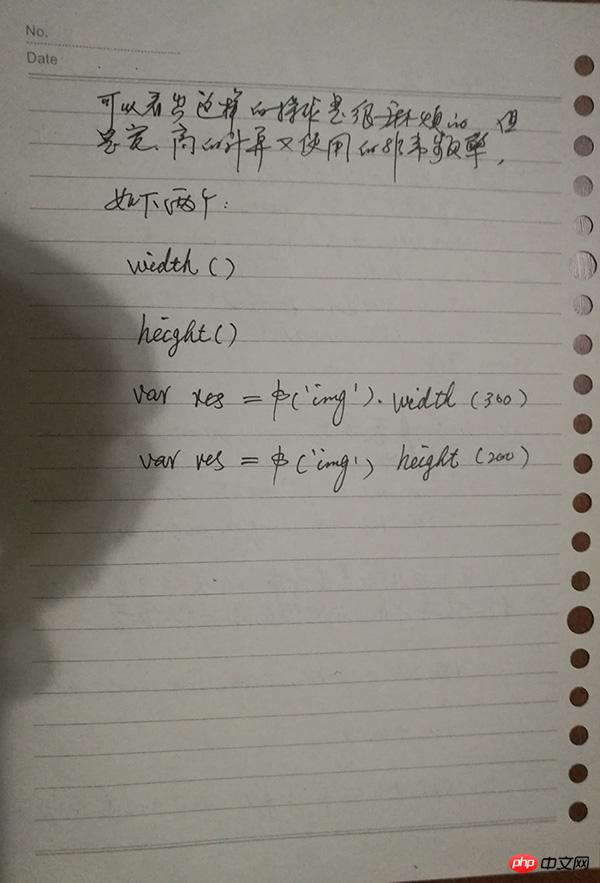 No.
Date
可以看出这样的操作是很麻烦的,但
是宽、高的计算又使用的非常频繁,
如下两个:
width()
height()
var res = $('img').width(300)
var res = $('img') height(200)
php 中文网